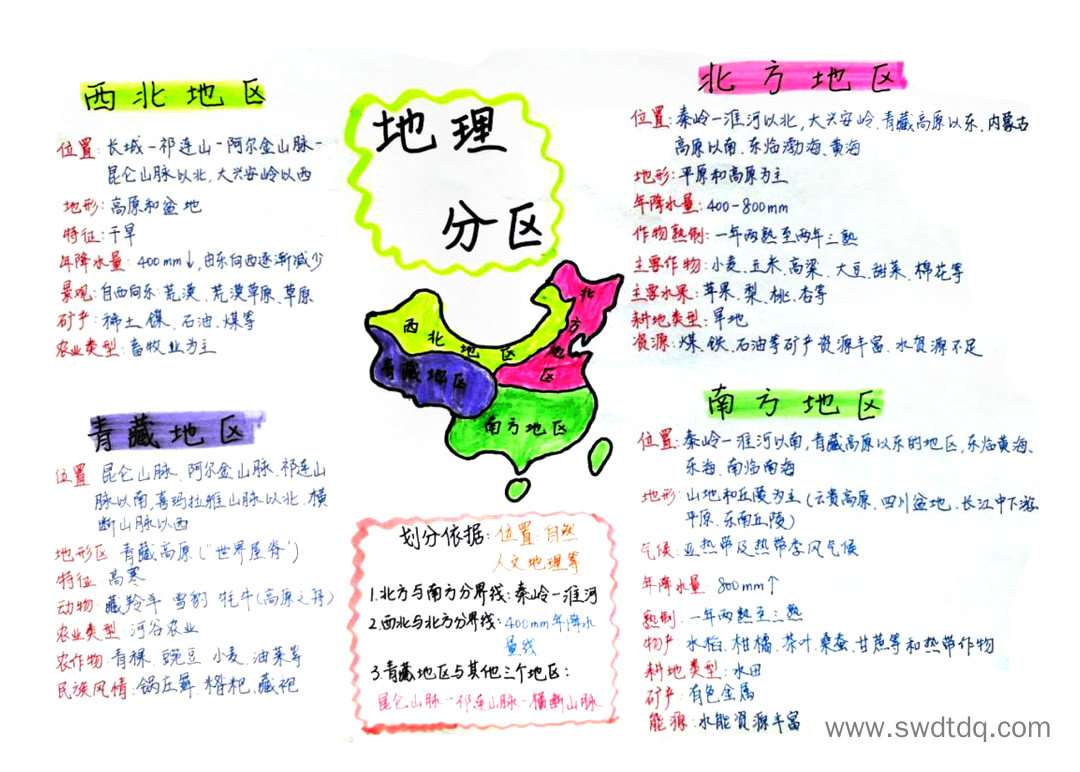 地理
分区
西北地区
位置:长城-祁连山-阿尔金山脉-
昆仑山脉以北,大兴安岭以西
地形:高原和盆地
特征:干旱
年降水量:400mm↓,由东向西逐渐减少
景观:自西向东:荒漠、荒漠草原、草原
矿产:稀土、镍、石油、煤等
农业类型:畜牧业为主
青藏地区
位置 昆仑山脉、阿尔金山脉、祁连山
脉以南,喜玛拉雅山脉以北、横
断山脉以西
地形区 青藏高原("世界屋脊")
特征:高寒
动物:藏羚羊 雪豹 牦牛(高原之舟)
农业类型 河谷农业
农作物:青稞、豌豆、小麦、油菜等
民族风情:锅庄舞、糌粑、藏袍
西北地区
北方地区
青藏地区
南方地区
划分依据:位置 自然
人文地理等
1.北方与南方分界线:秦岭-淮河
2.西北与北方分界线:400mm年降水
量线
3.青藏地区与其他三个地区:
昆仑山脉-祁连山脉-横断山脉
北方地区
位置:秦岭-淮河以北,大兴安岭、青藏高原以东、内蒙古
高原以南、东临渤海、黄海
地形:平原和高原为主
年降水量:400-800mm
作物熟制:一年两熟至两年三熟
主要作物:小麦、玉米、高粱、大豆、甜菜、棉花等
主要水果:苹果、梨、桃、杏等
耕地类型:旱地
资源:煤、铁、石油等矿产资源丰富、水资源不足
南方地区
位置:秦岭-淮河以南,青藏高原以东的地区,东临黄海、
东海、南临南海
地形:山地和丘陵为主(云贵高原、四川盆地、长江中下游
平原、东南丘陵)
气候:亚热带及热带季风气候
年降水量:800mm↑
熟制:一年两熟至三熟
物产 水稻、柑橘、茶叶、桑蚕、甘蔗等和热带作物
耕地类型:水田
矿产:有色金属
能源:水能资源丰富
www.swdtdq.com